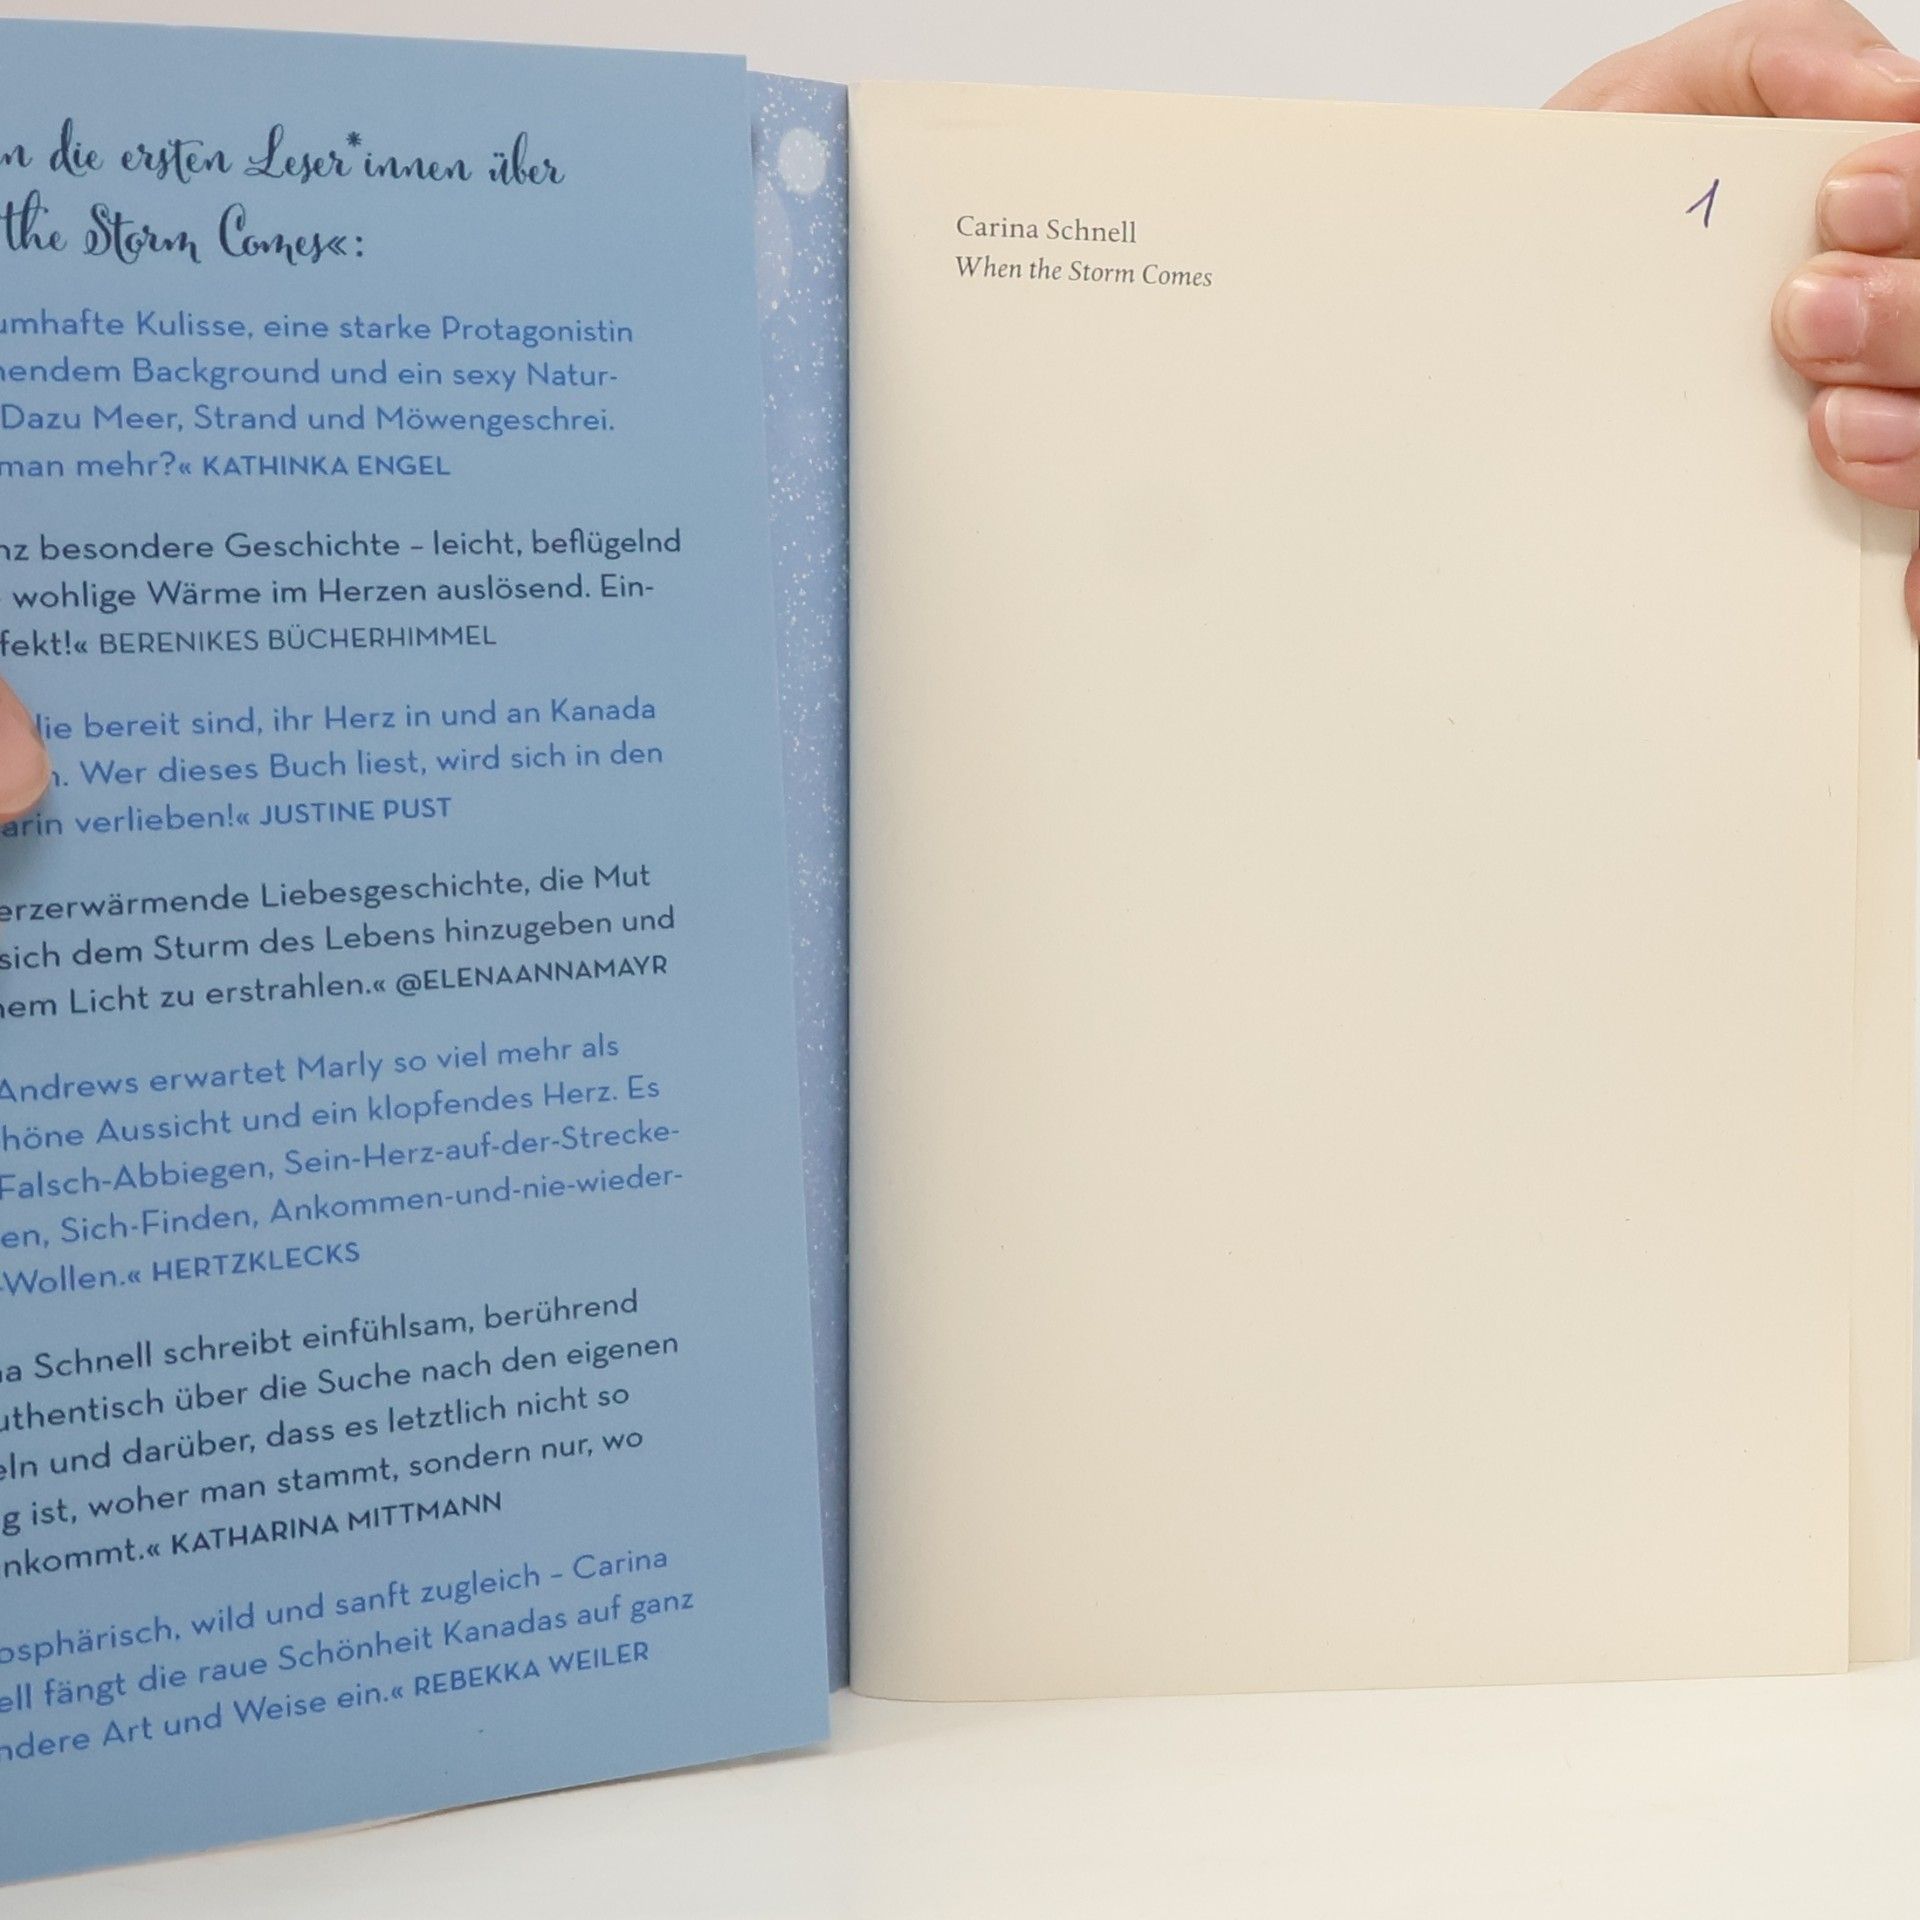 die ersten Leser*innen über
the Storm Comes«:
umhafte Kulisse, eine starke Protagonistin
endem Background und ein sexy Natur-
Dazu Meer, Strand und Möwengeschrei.
man mehr?« KATHINKA ENGEL
nz besondere Geschichte – leicht, beflügelnd
wohlige Wärme im Herzen auslösend. Ein-
fekt!« BERENIKES BÜCHERHIMMEL
die bereit sind, ihr Herz in und an Kanada
n. Wer dieses Buch liest, wird sich in den
arin verlieben!« JUSTINE PUST
erzerwärmende Liebesgeschichte, die Mut
sich dem Sturm des Lebens hinzugeben und
nem Licht zu erstrahlen.« @ELENAANNAMAYR
Andrews erwartet Marly so viel mehr als
höne Aussicht und ein klopfendes Herz. Es
Falsch-Abbiegen, Sein-Herz-auf-der-Strecke-
en, Sich-Finden, Ankommen-und-nie-wieder-
-Wollen.« HERTZKLECKS
na Schnell schreibt einfühlsam, berührend
uthentisch über die Suche nach den eigenen
eln und darüber, dass es letztlich nicht so
g ist, woher man stammt, sondern nur, wo
nkommt.« KATHARINA MITTMANN
osphärisch, wild und sanft zugleich – Carina
ell fängt die raue Schönheit Kanadas auf ganz
ndere Art und Weise ein.« REBEKKA WEILER
1
Carina Schnell
When the Storm Comes